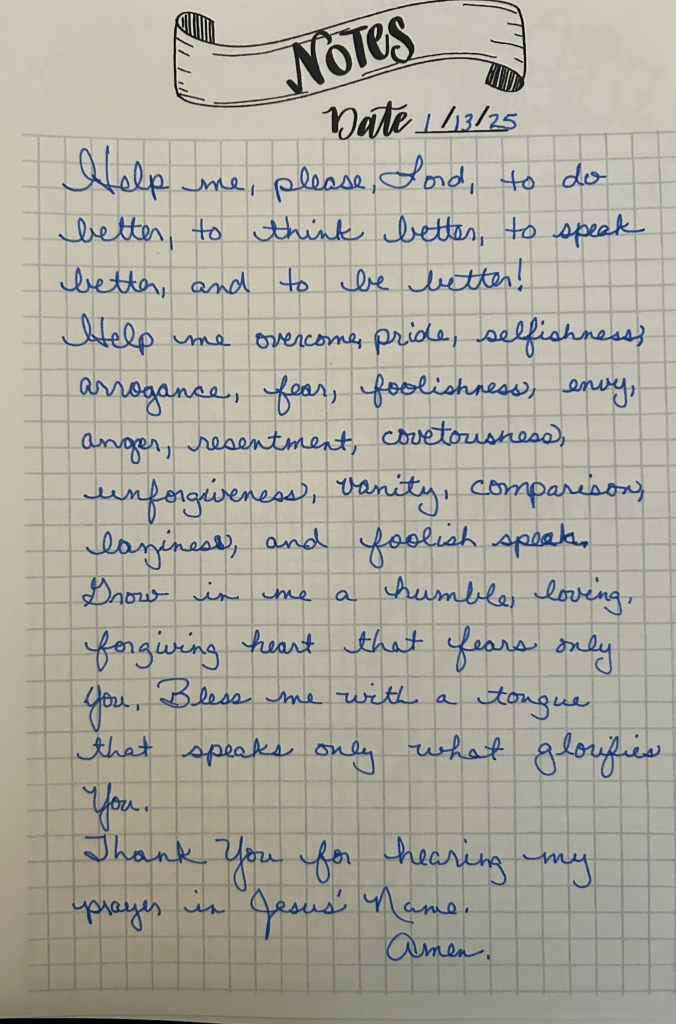 NOTES
Date 1/13/25
Help me, please, Lord, to do
better, to think better, to speak
better, and to be better!
Help me overcome pride, selfishness,
arrogance, fear, foolishness, envy,
anger, resentment, covetousness,
unforgiveness, vanity, comparison,
laziness, and foolish speak.
Grow in me a humble, loving,
forgiving heart that fears only
You. Bless me with a tongue
that speaks only what glorifies
You.
Thank You for hearing my
prayer in Jesus' Name.
Amen.